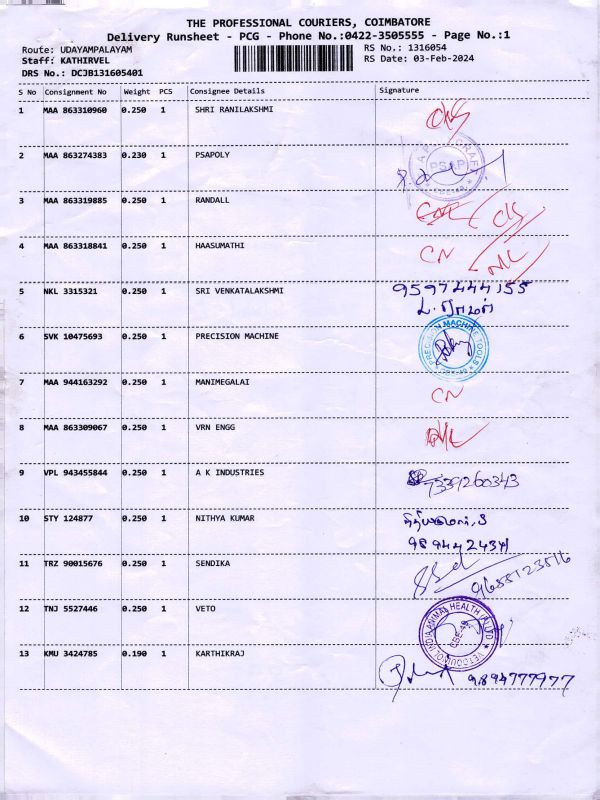 THE PROFESSIONAL COURIERS, COIMBATORE
Delivery Runsheet - PCG - Phone No.:0422-3505555 - Page No.:1
Route: UDAYAMPALAYAM RS No.: 1316054
Staff: KATHIRVEL RS Date: 03-Feb-2024
DRS No.: DCJB131605401
S No Consignment No Weight PCS Consignee Details Signature
1 MAA 863310960 0.250 1 SHRI RANILAKSHMI
2 MAA 863274383 0.230 1 PSAPOLY PSAP
3 MAA 863319885 0.250 1 RANDALL
4 MAA 863318841 0.250 1 HAASUMATHI CN
5 NKL 3315321 0.250 1 SRI VENKATALAKSHMI 9597444155
6 SVK 10475693 0.250 1 PRECISION MACHINE PRECISION MACHINE TOOLS
7 MAA 944163292 0.250 1 MANIMEGALAI CN
8 MAA 863309067 0.250 1 VRN ENGG
9 VPL 943455844 0.250 1 A K INDUSTRIES 7339260343
10 STY 124877 0.250 1 NITHYA KUMAR
11 TRZ 90015676 0.250 1 SENDIKA 9688123816
12 TNJ 5527446 0.250 1 VETO VETOQUINOL INDIA ANIMAL HEALTH (P) LTD CBE-48
13 KMU 3424785 0.190 1 KARTHIKRAJ 9894777977